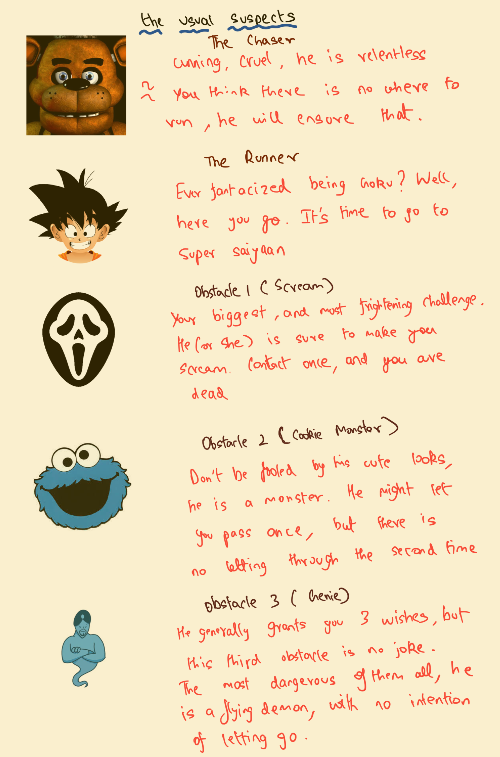 the usual suspects
The Chaser
cunning, cruel, he is relentless
You think there is no where to
run, he will ensure that.
The Runner
Ever fantacized being Goku? Well,
here you go. It's time to go to
super saiyaan
Obstacle 1 (Scream)
Your biggest, and most frightening challenge.
He (or she) is sure to make you
scream. Contact once, and you are
dead
Obstacle 2 (Cookie Monster)
Don't be fooled by his cute looks,
he is a monster. He might let
you pass once, but there is
no letting through the second time
Obstacle 3 (Genie)
He generally grants you 3 wishes, but
this third obstacle is no joke.
The most dangerous of them all, he
is a flying demon, with no intention
of letting go.